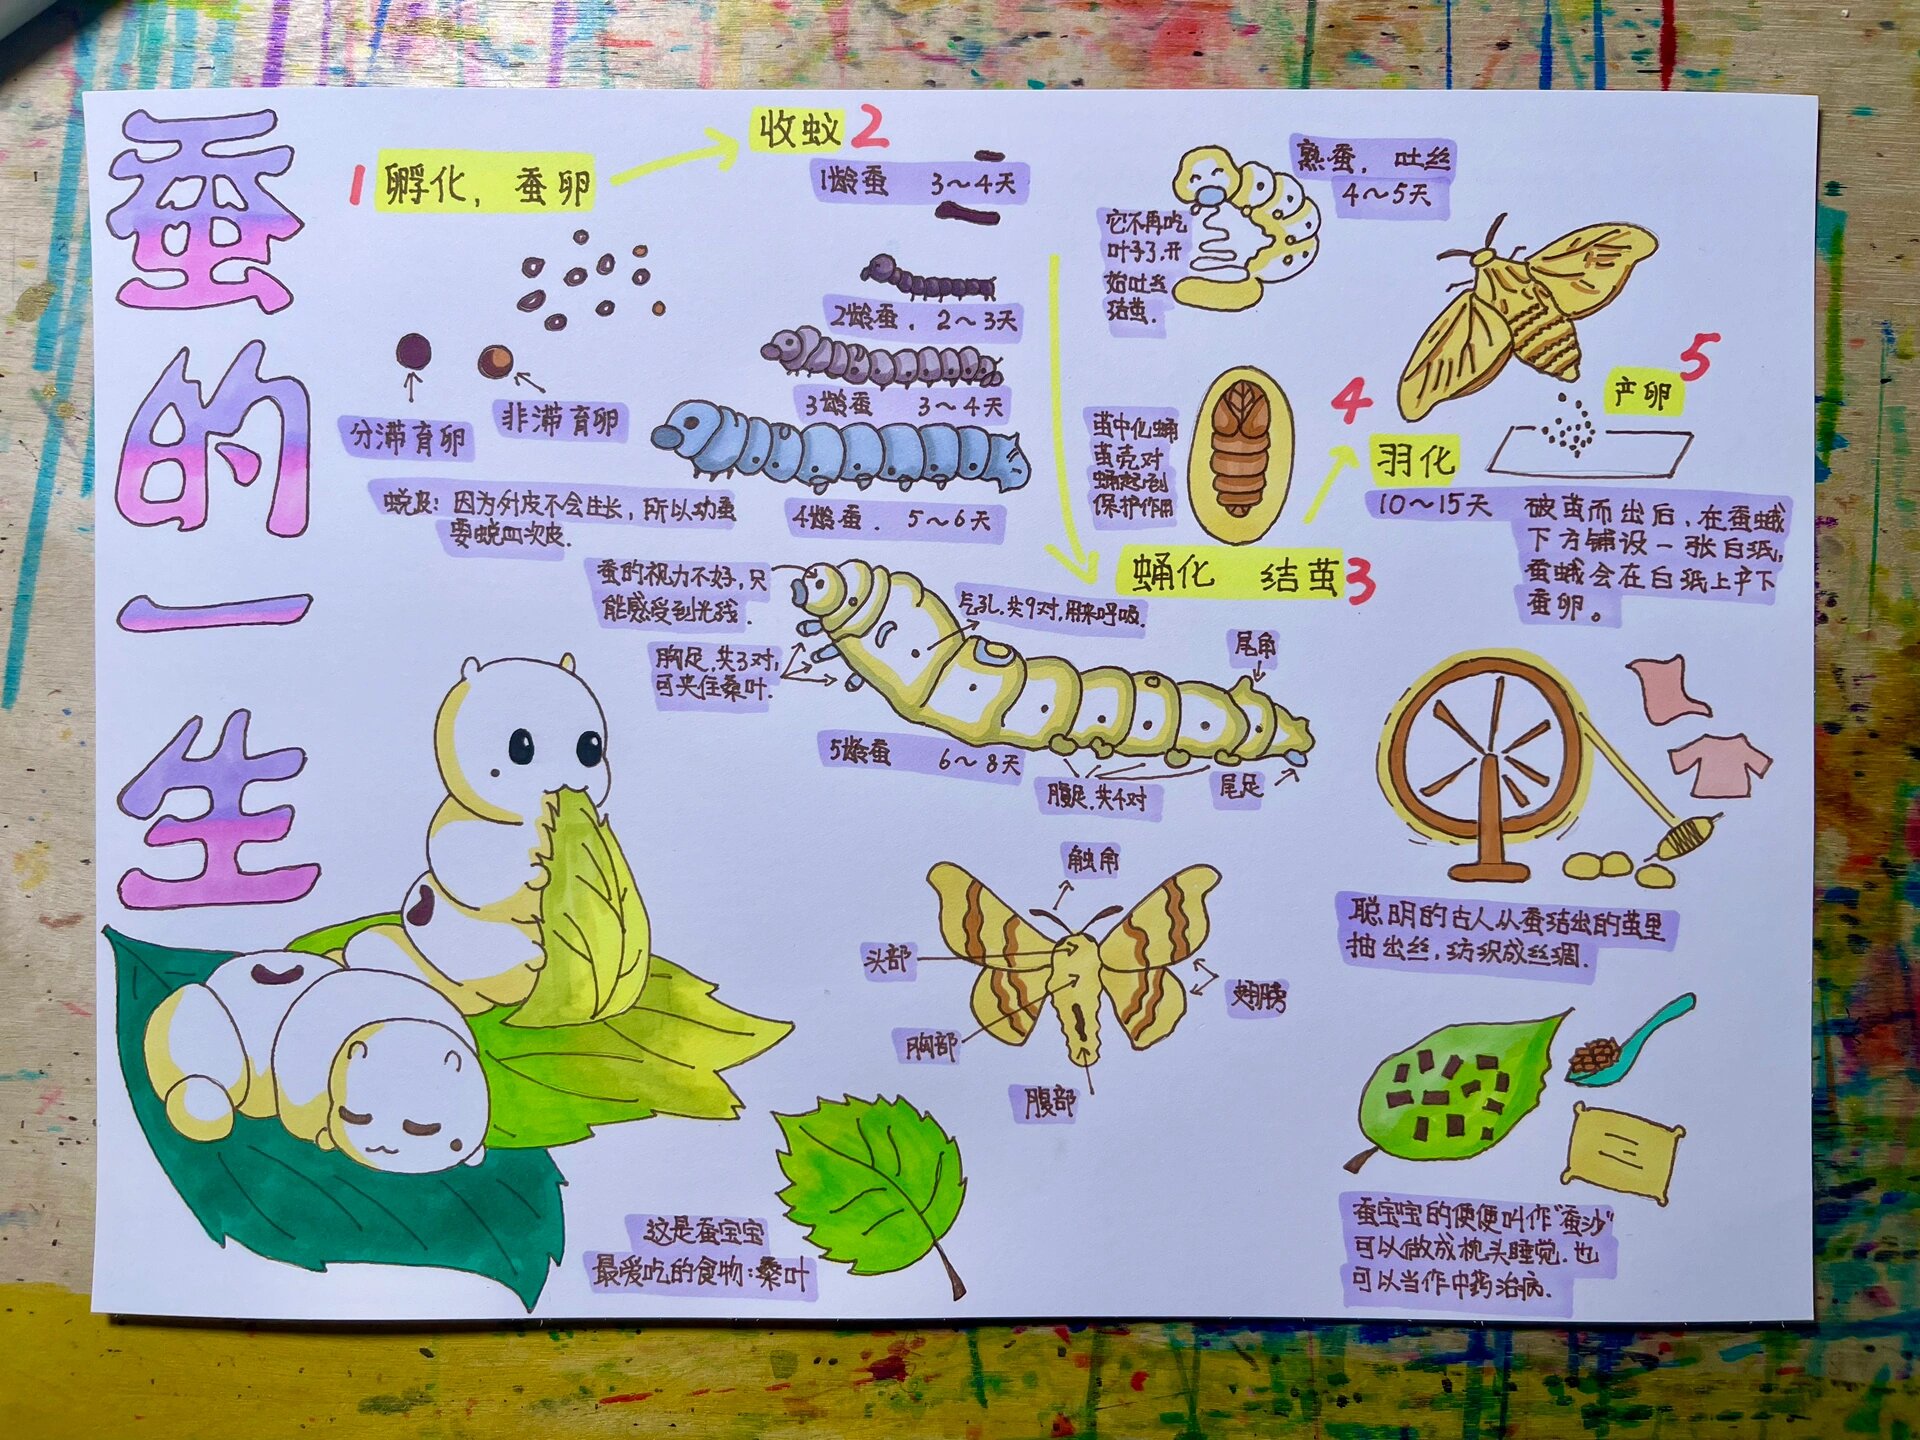 蚕的一生
1 孵化，蚕卵
分滞育卵
非滞育卵
蜕皮：因为外皮不会生长，所以幼蚕
要蜕四次皮.
收蚁 2
1龄蚕 3～4天
2龄蚕. 2～3天
3龄蚕 3～4天
4龄蚕. 5～6天
蚕的视力不好，只
能感受到光线.
胸足.共3对，
可夹住桑叶.
气孔.共9对，用来呼吸.
尾角
5龄蚕 6～8天
腹足.共4对
尾足
熟蚕，吐丝
4～5天
它不再吃
叶子了，开
始吐丝
结茧.
茧中化蛹
茧壳对
蛹起到
保护作用
蛹化 结茧 3
4
羽化
10～15天
产卵 5
破茧而出后，在蚕蛾
下方铺设一张白纸，
蚕蛾会在白纸上产下
蚕卵。
触角
头部
胸部
腹部
翅膀
聪明的古人从蚕结出的茧里
抽出丝，纺织成丝绸.
蚕宝宝的便便叫作“蚕沙”
可以做成枕头睡觉.也
可以当作中药治病.
这是蚕宝宝
最爱吃的食物：桑叶